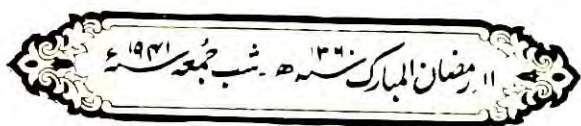 ۱۱ رمضان المبارک ۱۳۶۰سنہ ھ۔ شب جمُعہ ۱۹۴۱سنہ ء